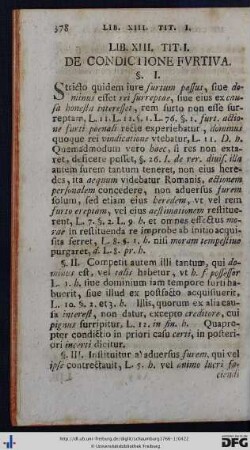 378 LIB. XIII. TIT. I.
LIB. XIII. TIT. I.
DE CONDICTIONE FVRTIVA.
§. I.
Stricto quidem iure furtum passus, siue do-
minus esset rei surreptae, siue eius ex cau-
sa honesta interesset, rem furto non esse sur-
reptam, L. 11. L. 12. §. 1. L. 76. §. 1. furt. actio-
ne furti poenali recte experiebatur, dominus
quoque rei vindicatione vtebatur, L. 11. D. h.
Quemadmodum vero haec, si res non exta-
ret, deficere posset, §. 26. I. de rer. diuis. illa
autem furem tantum teneret, non eius here-
des, ita aequum videbatur Romanis, actionem
personalem concedere, non aduersus furem
solum, sed etiam eius heredem, vt vel rem
furto ereptam, vel eius aestimationem restitue-
rent, L. 7. §. 2. L. 9. h. et omnes effectus mo-
rae in restituenda re improbe ab initio acqui-
sita ferret, L. 8. §. 1. h. nisi moram tempestiue
purgaret, d. L. 8. pr. h.
§. II. Competit autem illi tantum, qui do-
minus est, vel talis habetur, vt b. f. possessor
L. 1. h. siue dominium iam tempore furti ha-
buerit, siue illud ex postfacto acquisiuerit,
L. 10. §. 2. et 3. h. Illis, quorum ex alia cau-
sa interest, non datur, excepto creditore, cui
pignus surripitur, L. 12. in fin. h. Quapro-
pter condictio in priori casu certi, in posteri-
ori incerti dicitur.
§. III. Instituitur aduersus furem, qui vel
ipse contrectauit, L. 5. h. vel animo lucri fa-
ciendi
http://dl.ub.uni-freiburg.de/diglit/schaumburg1768-1/0422
© Universitätsbibliothek Freiburg